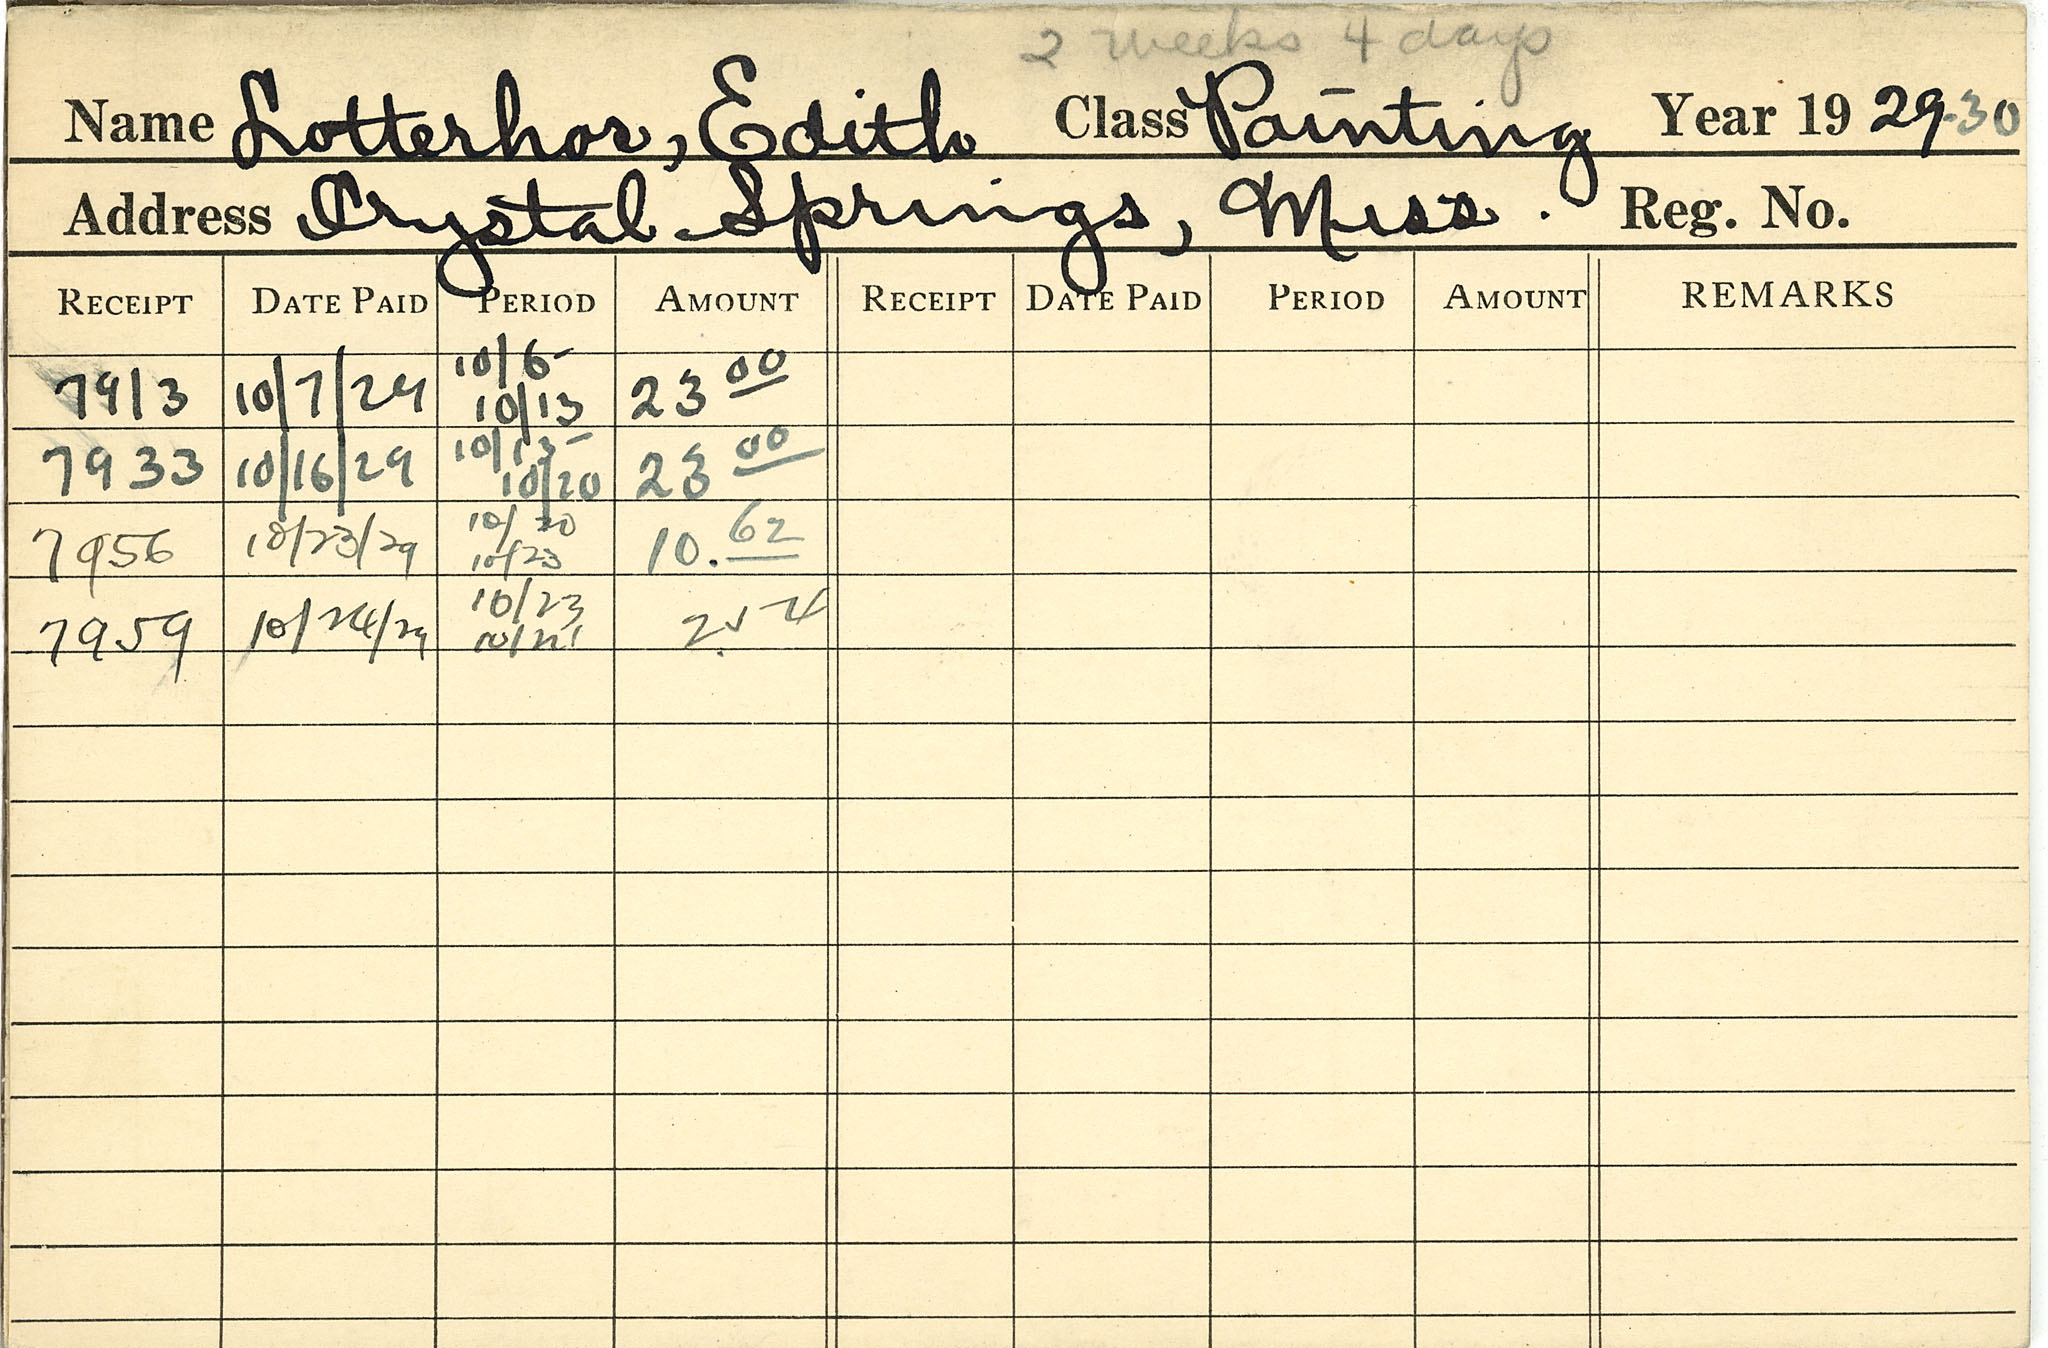 2 weeks 4 days
Name Lotterhos, Edith Class Painting Year 19 29-30
Address Crystal Springs, Miss. Reg. No.
RECEIPT DATE PAID PERIOD AMOUNT RECEIPT DATE PAID PERIOD AMOUNT REMARKS
7913 10/7/29 10/6- 10/13 23 00
7933 10/16/29 10/13- 10/20 23 00
7956 10/23/29 10/20 10/23 10.62
7959 10/24/29 10/23 2.54